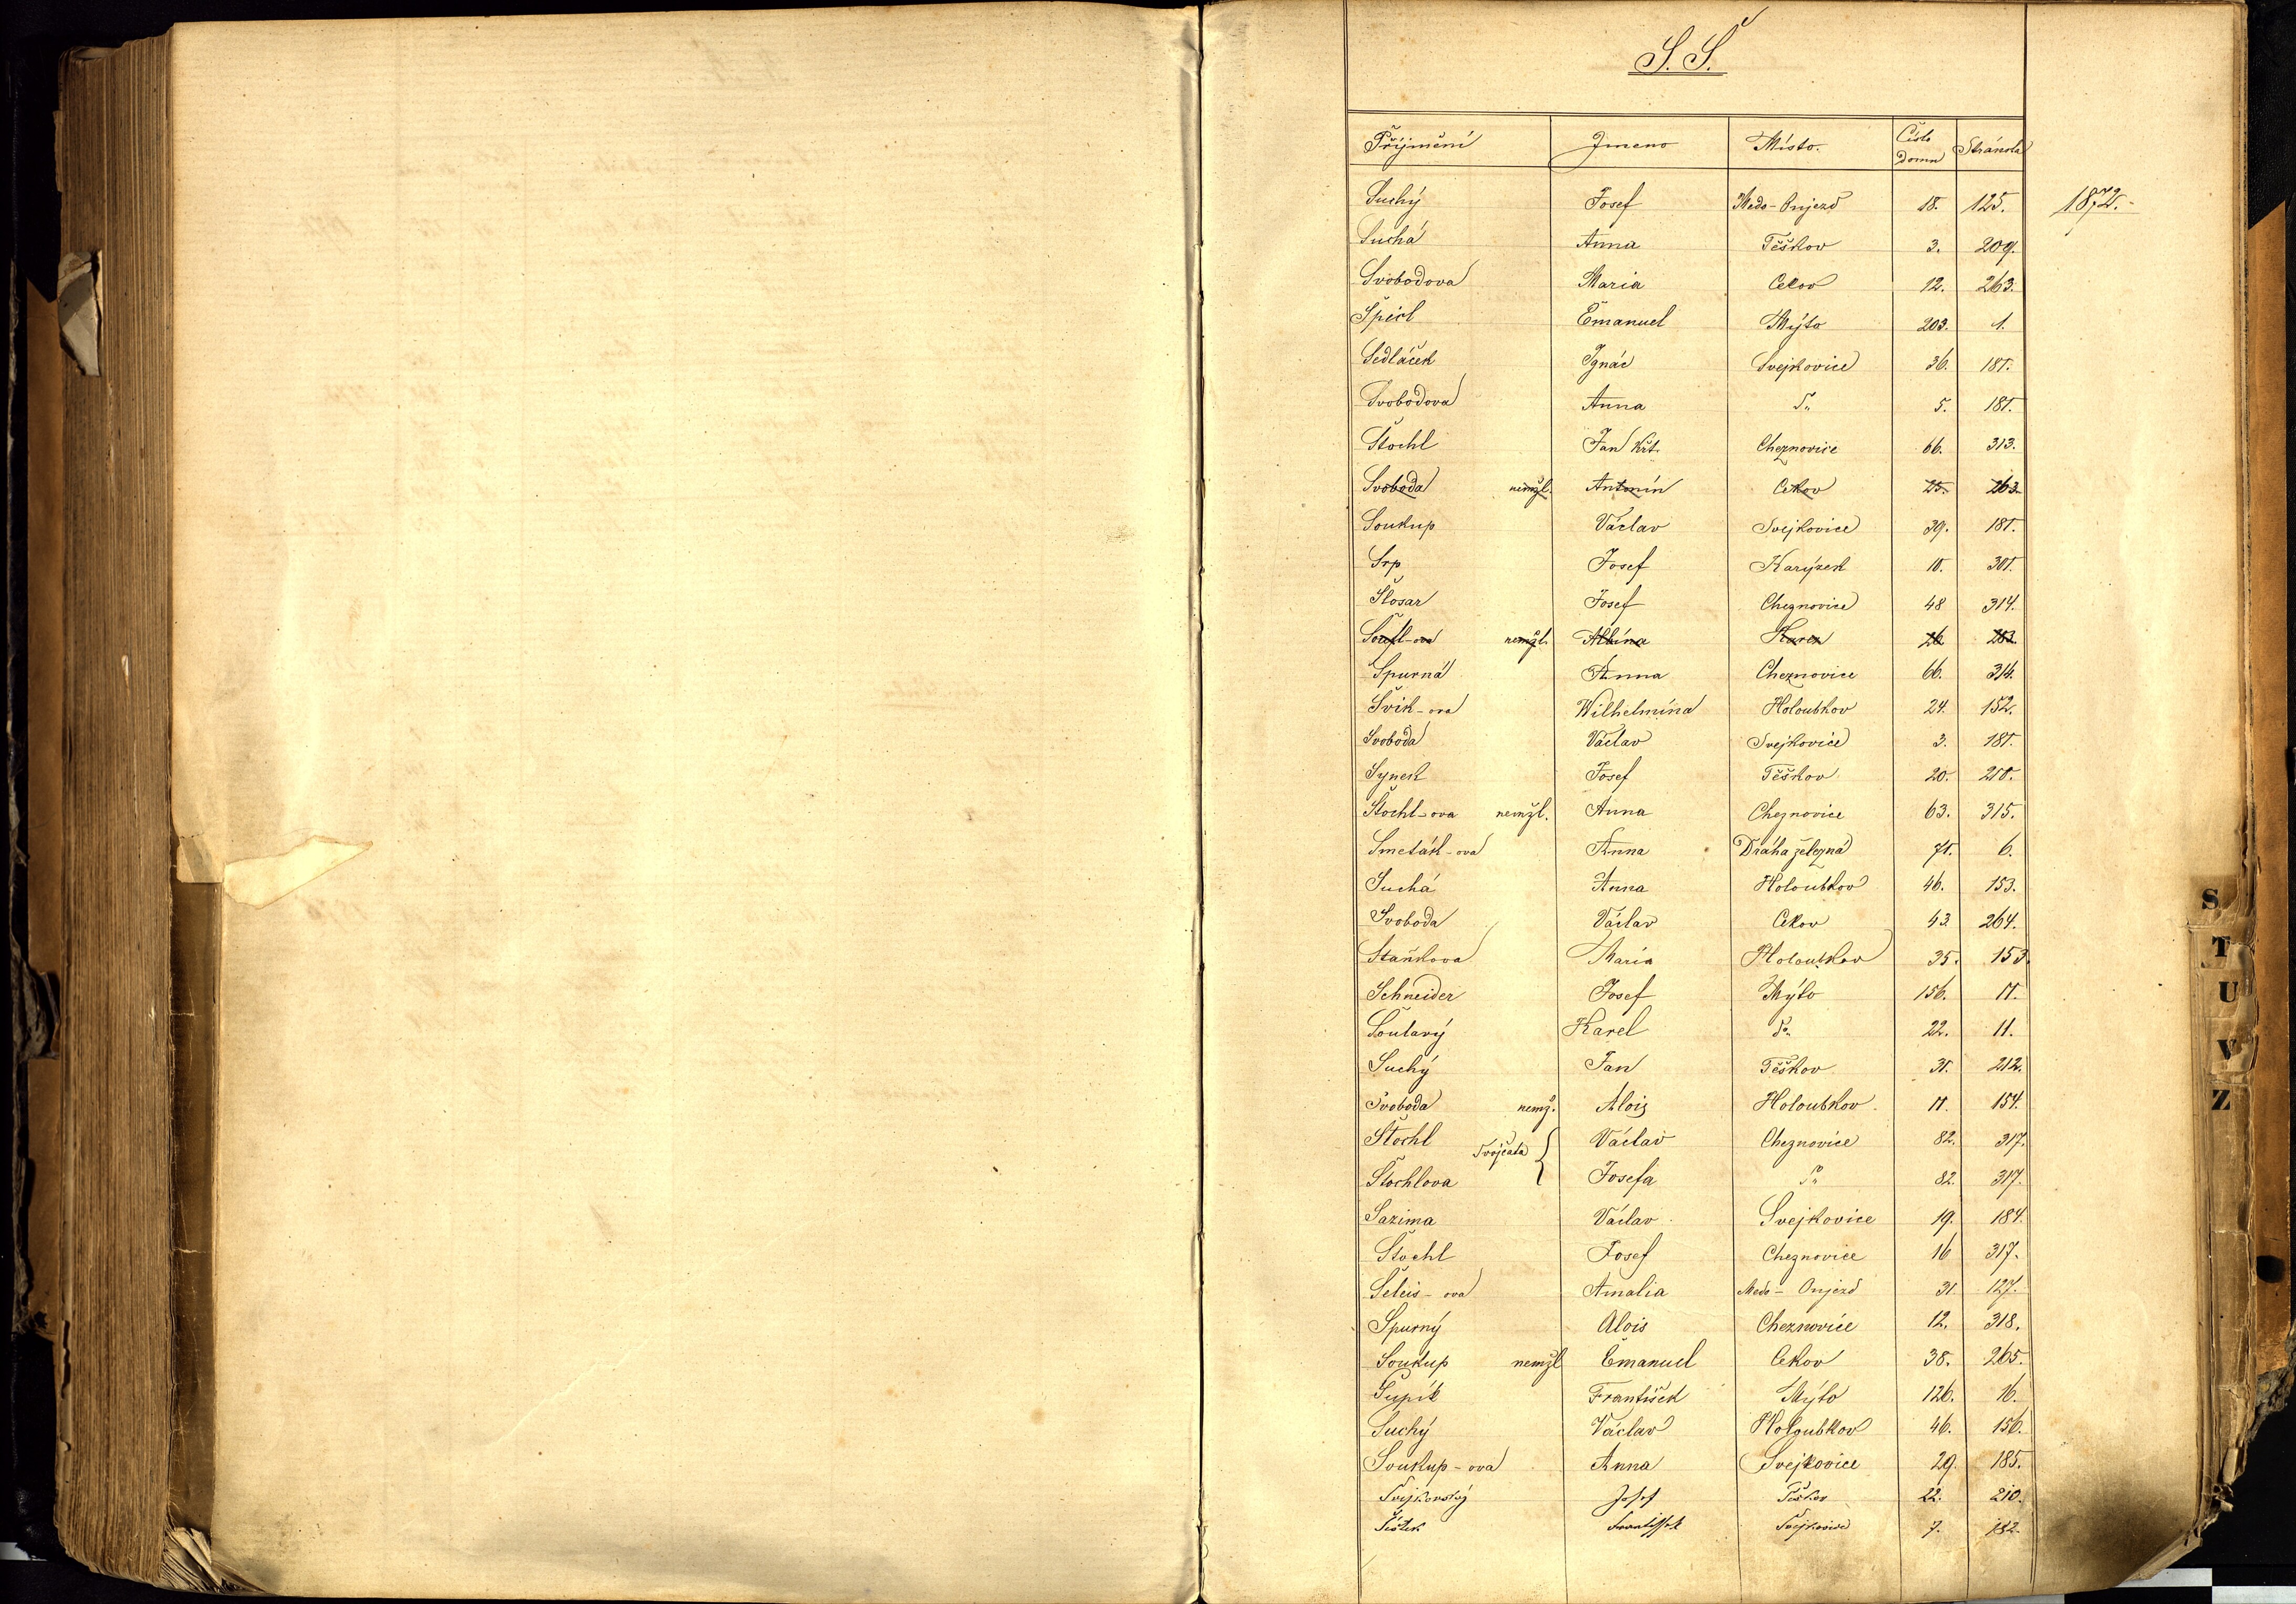 S. Š.
Příjmění Jmeno Místo. Číslo domu Stránka
Suchý Josef Medo-Oujezd 18. 125. 1872.
Suchá Anna Těškov 3. 209.
Svobodova Maria Cekov 12. 263.
Špirl Emanuel Mýto 203. 1.
Sedláček Ignác Svejkovice 36. 181.
Svobodova Anna 5. 181.
Štochl Jan Křt. Cheznovice 66. 313.
Svoboda nemžl. Antonín Cekov 25. 263.
Soukup Václav Svejkovice 39. 181.
Srp Josef Karýzek 10. 301.
Slosar Josef Cheznovice 48 314.
nemžl. Albína Karez 26. 283.
Spurná Anna Cheznovice 66. 314.
Švik-ova Wilhelmína Holoubkov 24. 152.
Svoboda Václav Svejkovice 3. 181.
Synek Josef Těškov 20. 210.
Štochl-ova nemžl. Anna Cheznovice 63. 315.
Smeták-ova Anna Dráha železná 71. 6.
Suchá Anna Holoubkov 46. 153.
Svoboda Václav Cekov 43 264.
Staňkova Maria Holoubkov 35. 153.
Schneider Josef Mýto 156. 11.
Šoulavý Karel 22. 11.
Suchý Jan Těškov 31. 212.
Svoboda nemž. Alois Holoubkov 11. 154.
Štochl Václav Cheznovice 82. 317.
Dvojčata
Štochlova Josefa 82. 317.
Sazima Václav Svejkovice 19. 184.
Štochl Josef Cheznovice 16 317.
Šeleis-ova Amalia Medo-Oujezd 31 127.
Spurný Alois Cheznovice 12. 318.
Soukup nemžl Emanuel Cekov 38. 265.
Šupík František Mýto 126. 16.
Suchý Václav Holoubkov 46. 156.
Soukup-ova Anna Svejkovice 29. 185.
Svejkovský Josef Těškov 22. 210.
Šístek František Svejkovice 7. 182.
S
T
U
V
Z